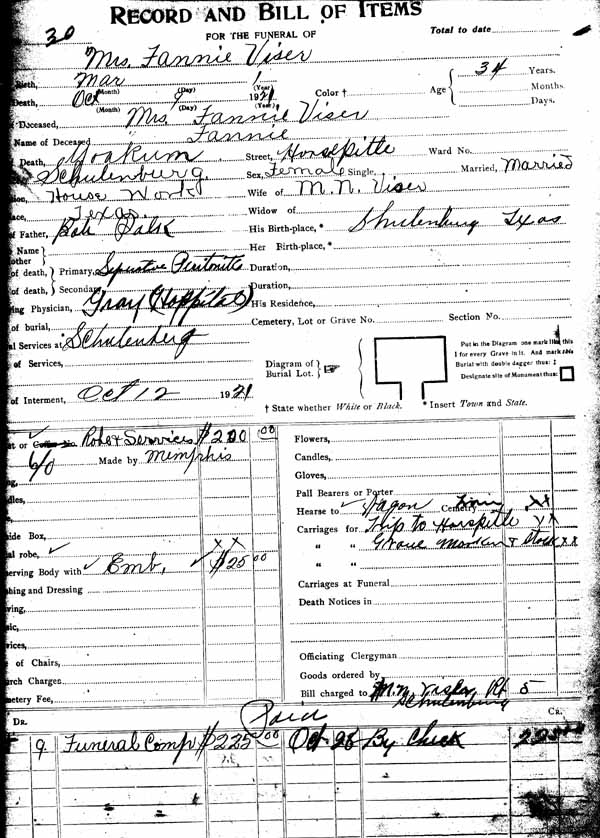 RECORD AND BILL OF ITEMS
30
FOR THE FUNERAL OF
Total to date
Mrs. Fannie Viser
Birth, Mar 1 Color † Age 34 Years.
(Month) (Day) (Year) Months.
Death, Oct 9 1921 Days.
(Month) (Day) (Year)
Deceased, Mrs Fannie Viser
Name of Deceased " Fannie
Death, Yoakum Street, Horsepittle Ward No.
Schulenburg. Sex, Female Single, Married, Married
House Work Wife of M. N. Viser
Texas. Widow of
of Father, His Birth-place, * Shulenburg Texas
Name Her Birth-place, *
of death, Primary, Duration,
of death, Secondary Duration,
ing Physician, Gray (Hoppital) His Residence,
of burial, Cemetery, Lot or Grave No. Section No.
al Services at Schulenberg
of Services,
Diagram of Burial Lot.
Put in the Diagram one mark like this
1 for every Grave in it. And mark this
Burial with double dagger thus: ‡
Designate site of Monument thus:
of Interment, Oct 12 1921
† State whether White or Black. * Insert Town and State.
Robe & Serrvices $200 00 Flowers,
6/0 Made by Memphis Candles,
Gloves,
Pall Bearers or Porter
Hearse to Wagon Cemetery xx
side Box, Carriages for Trip to Horspittle xx
al robe, " " Grave & xx
serving Body with Emb, $25 00 " "
shing and Dressing Carriages at Funeral
Death Notices in
of Chairs, Officiating Clergyman
rch Charges Goods ordered by
metery Fee, Bill charged to M.N. Rt 5
Schulenburg
DR. Paid CR.
9 Funeral Comp $225 00 Oct 26 By Check 225 00